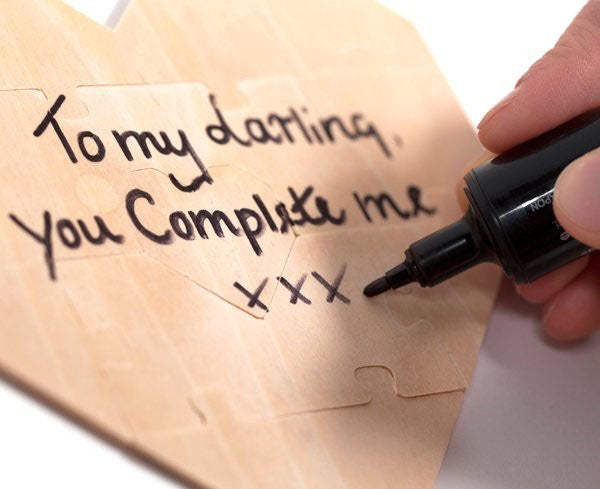 To my darling,
You Complete me
xxx